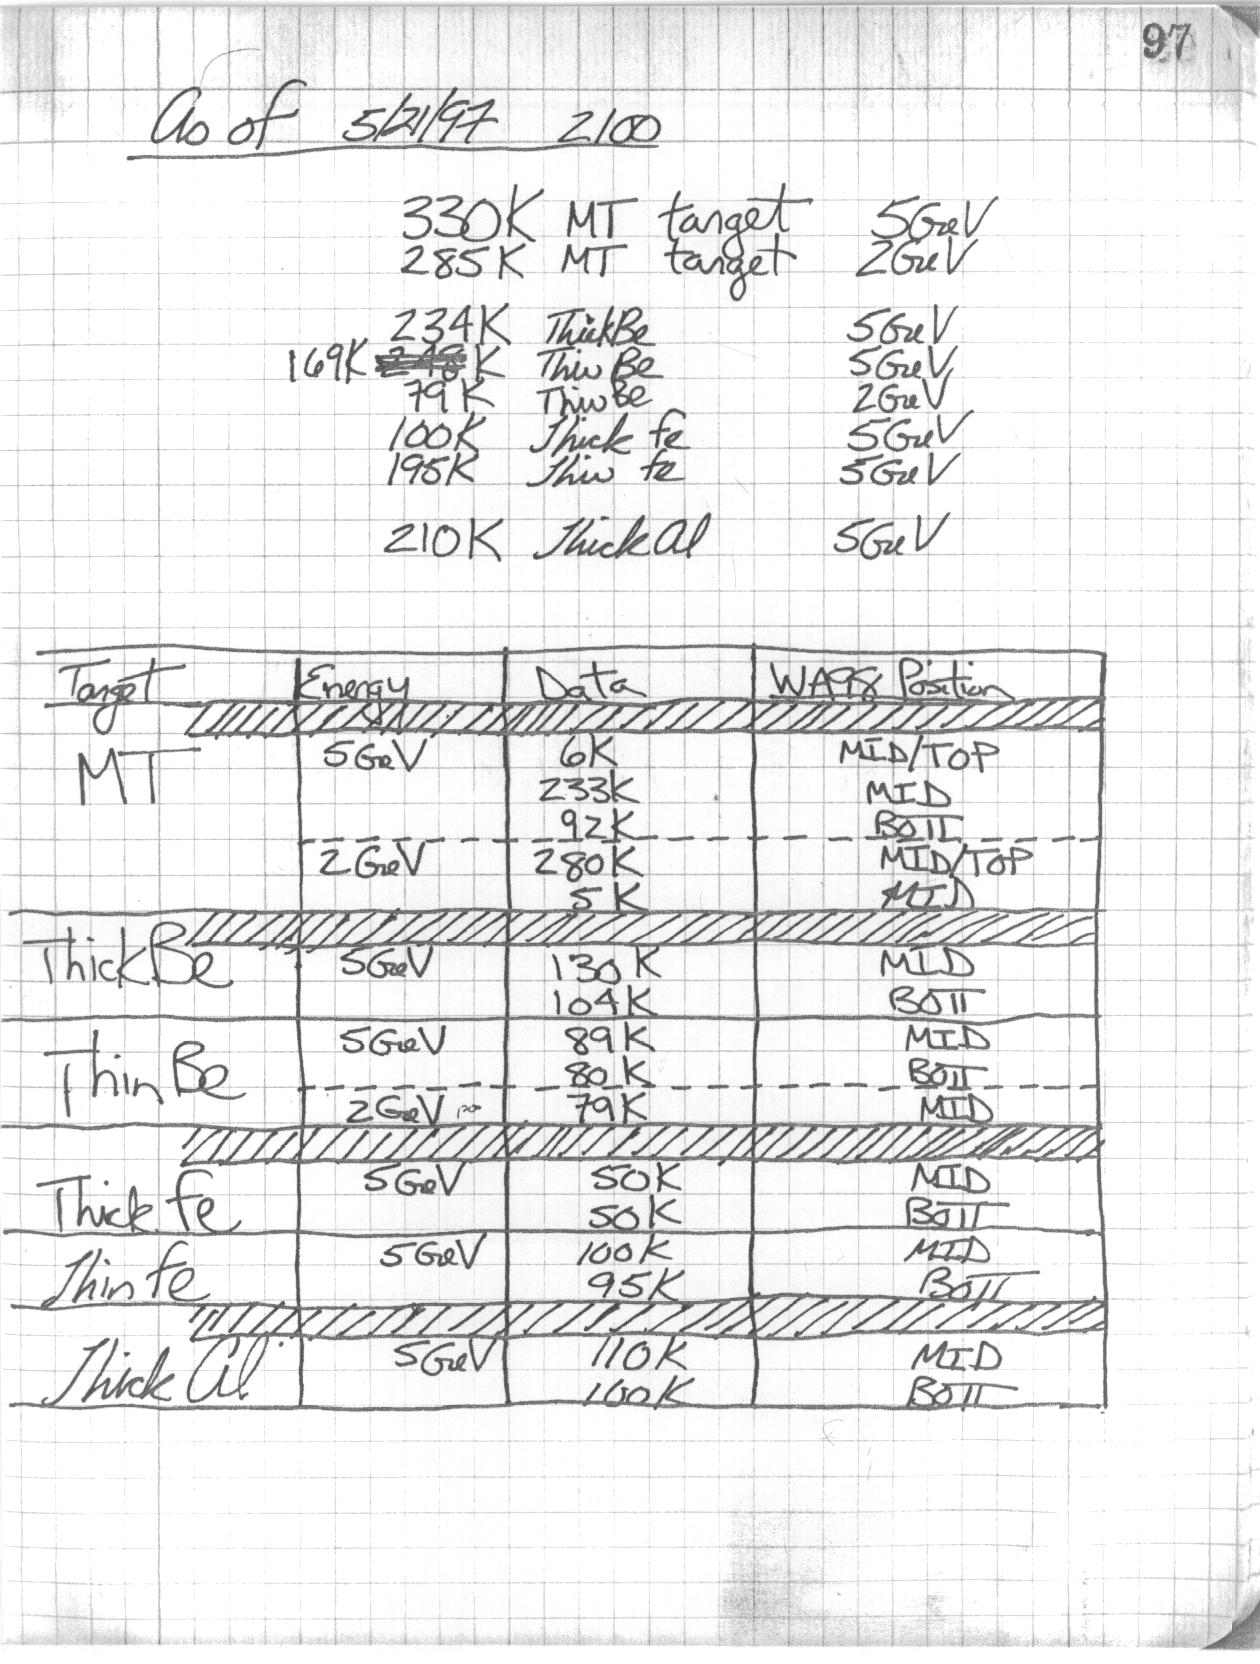 97
As of 5/21/97 2100
330K MT target 5GeV
285K MT target 2GeV
234K ThickBe 5GeV
169K K Thin Be 5GeV
79K Thin Be 2GeV
100K Thick Fe 5GeV
195K Thin Fe 5GeV
210K Thick Al 5GeV
Target Energy Data WA98 Position
MT 5GeV 6K MID/TOP
233K MID
92K BOTT
2GeV 280K MID/TOP
5K MID
ThickBe 5GeV 130K MID
104K BOTT
Thin Be 5GeV 89K MID
80K BOTT
2GeV 79K MID
Thick Fe 5GeV 50K MID
50K BOTT
Thin Fe 5GeV 100K MID
95K BOTT
Thick Al 5GeV 110K MID
100K BOTT